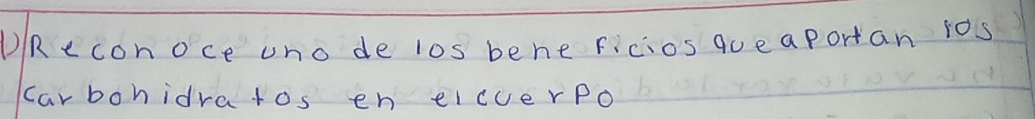 1) Reconoce uno de los beneficios que aportan los
carbohidratos en el cuerpo